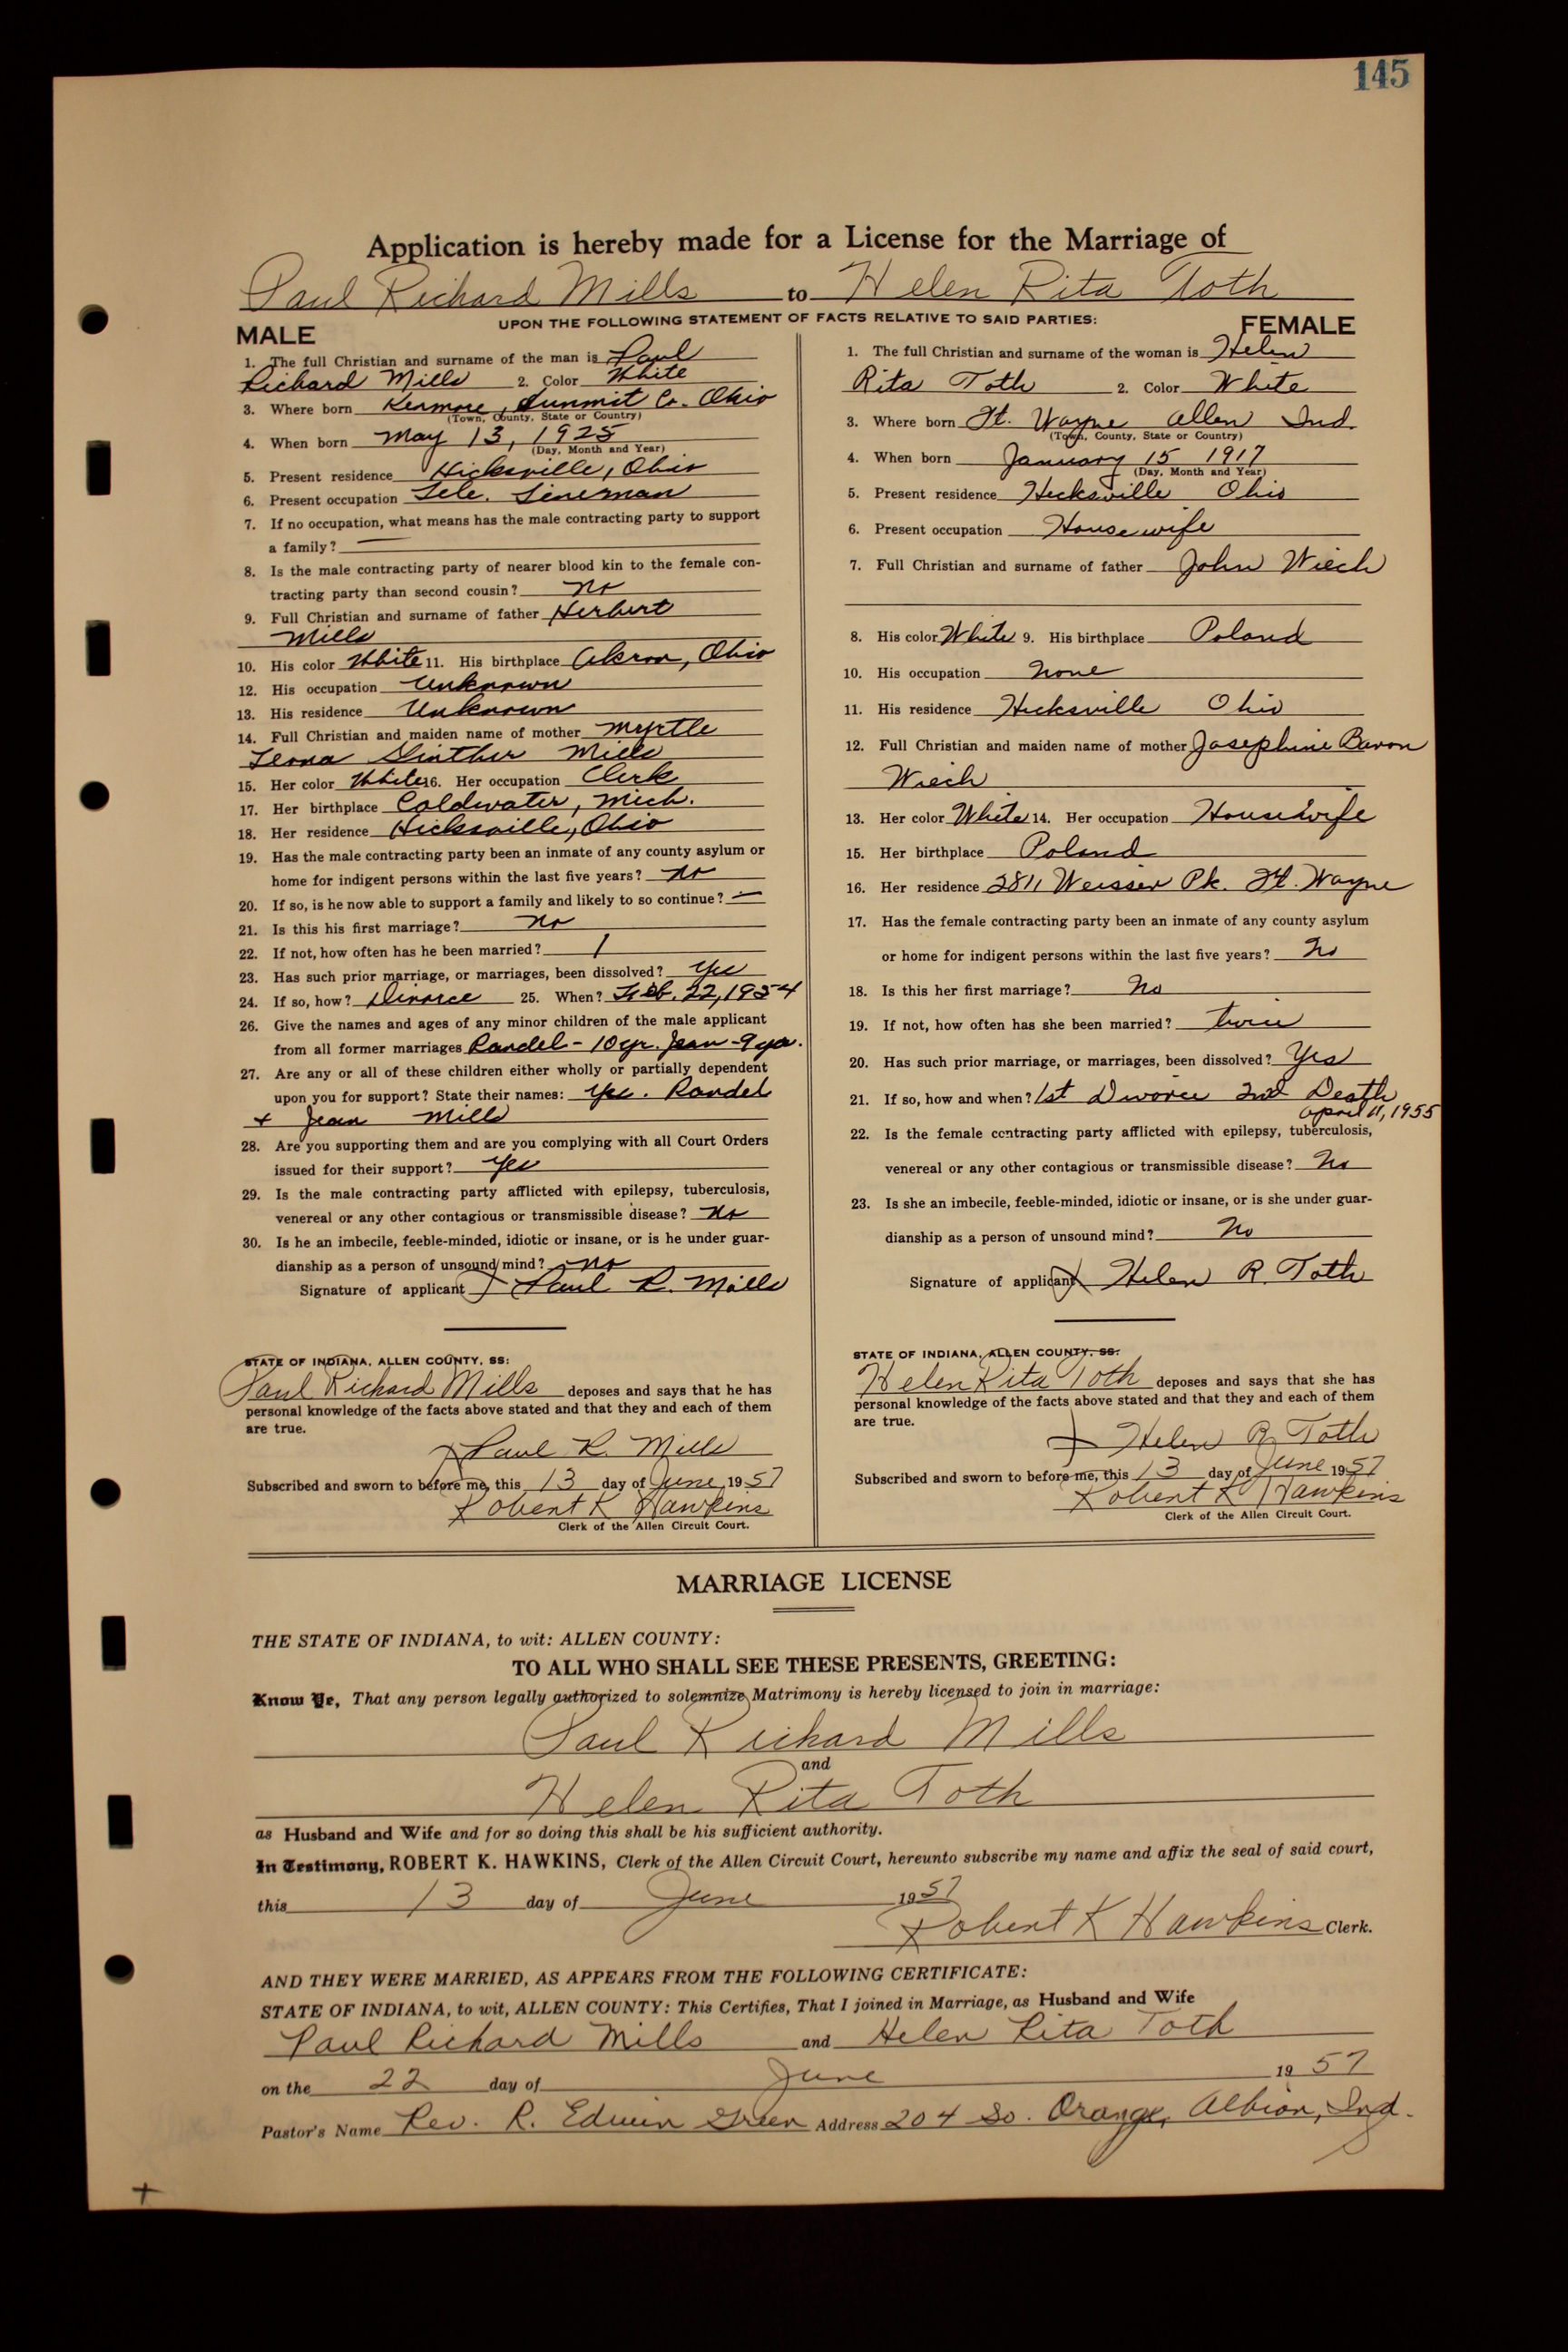 145
Application is hereby made for a License for the Marriage of
Paul Richard Mills to Helen Rita Toth
UPON THE FOLLOWING STATEMENT OF FACTS RELATIVE TO SAID PARTIES:
MALE
1. The full Christian and surname of the man is Paul
Richard Mills 2. Color White
3. Where born Kenmore, Summit Co. Ohio
(Town, County, State or Country)
4. When born May 13, 1925
(Day, Month and Year)
5. Present residence Hicksville, Ohio
6. Present occupation Tele. Lineman
7. If no occupation, what means has the male contracting party to support
a family? —
8. Is the male contracting party of nearer blood kin to the female con-
tracting party than second cousin? no
9. Full Christian and surname of father Herbert
Mills
10. His color White 11. His birthplace Akron, Ohio
12. His occupation Unknown
13. His residence Unknown
14. Full Christian and maiden name of mother Myrtle
Leona Ginther Mills
15. Her color White 16. Her occupation Clerk
17. Her birthplace Coldwater, Mich.
18. Her residence Hicksville, Ohio
19. Has the male contracting party been an inmate of any county asylum or
home for indigent persons within the last five years? no
20. If so, is he now able to support a family and likely to so continue? —
21. Is this his first marriage? no
22. If not, how often has he been married? 1
23. Has such prior marriage, or marriages, been dissolved? yes
24. If so, how? Divorce 25. When? Feb. 22, 1954
26. Give the names and ages of any minor children of the male applicant
from all former marriages Randel - 10 yr. Jean - 9 yr.
27. Are any or all of these children either wholly or partially dependent
upon you for support? State their names: yes. Randel
+ Jean Mills
28. Are you supporting them and are you complying with all Court Orders
issued for their support? yes
29. Is the male contracting party afflicted with epilepsy, tuberculosis,
venereal or any other contagious or transmissible disease? no
30. Is he an imbecile, feeble-minded, idiotic or insane, or is he under guar-
dianship as a person of unsound mind? no
Signature of applicant X Paul R. Mills
STATE OF INDIANA, ALLEN COUNTY, SS:
Paul Richard Mills deposes and says that he has
personal knowledge of the facts above stated and that they and each of them
are true.
X Paul R. Mills
Subscribed and sworn to before me, this 13 day of June 1957
Robert K Hawkins
Clerk of the Allen Circuit Court.
FEMALE
1. The full Christian and surname of the woman is Helen
Rita Toth 2. Color White
3. Where born Ft. Wayne Allen Ind.
(Town, County, State or Country)
4. When born January 15 1917
(Day, Month and Year)
5. Present residence Hicksville Ohio
6. Present occupation Housewife
7. Full Christian and surname of father John Wiech
8. His color White 9. His birthplace Poland
10. His occupation none
11. His residence Hicksville Ohio
12. Full Christian and maiden name of mother Josephine Baron
Wiech
13. Her color White 14. Her occupation Housewife
15. Her birthplace Poland
16. Her residence 2811 Weisser Pk. Ft. Wayne
17. Has the female contracting party been an inmate of any county asylum
or home for indigent persons within the last five years? No
18. Is this her first marriage? No
19. If not, how often has she been married? twice
20. Has such prior marriage, or marriages, been dissolved? Yes
21. If so, how and when? 1st Divorce 2nd Death
April 11, 1955
22. Is the female contracting party afflicted with epilepsy, tuberculosis,
venereal or any other contagious or transmissible disease? No
23. Is she an imbecile, feeble-minded, idiotic or insane, or is she under guar-
dianship as a person of unsound mind? No
Signature of applicant X Helen R. Toth
STATE OF INDIANA, ALLEN COUNTY, SS:
Helen Rita Toth deposes and says that she has
personal knowledge of the facts above stated and that they and each of them
are true.
X Helen R Toth
Subscribed and sworn to before me, this 13 day of June 1957
Robert K Hawkins
Clerk of the Allen Circuit Court.
MARRIAGE LICENSE
THE STATE OF INDIANA, to wit: ALLEN COUNTY:
TO ALL WHO SHALL SEE THESE PRESENTS, GREETING:
Know Ye, That any person legally authorized to solemnize Matrimony is hereby licensed to join in marriage:
Paul Richard Mills
and
Helen Rita Toth
as Husband and Wife and for so doing this shall be his sufficient authority.
In Testimony, ROBERT K. HAWKINS, Clerk of the Allen Circuit Court, hereunto subscribe my name and affix the seal of said court,
this 13 day of June 1957
Robert K Hawkins Clerk.
AND THEY WERE MARRIED, AS APPEARS FROM THE FOLLOWING CERTIFICATE:
STATE OF INDIANA, to wit, ALLEN COUNTY: This Certifies, That I joined in Marriage, as Husband and Wife
Paul Richard Mills and Helen Rita Toth
on the 22 day of June 1957
Pastor's Name Rev. R. Edwin Green Address 204 So. Orange, Albion, Ind.
+